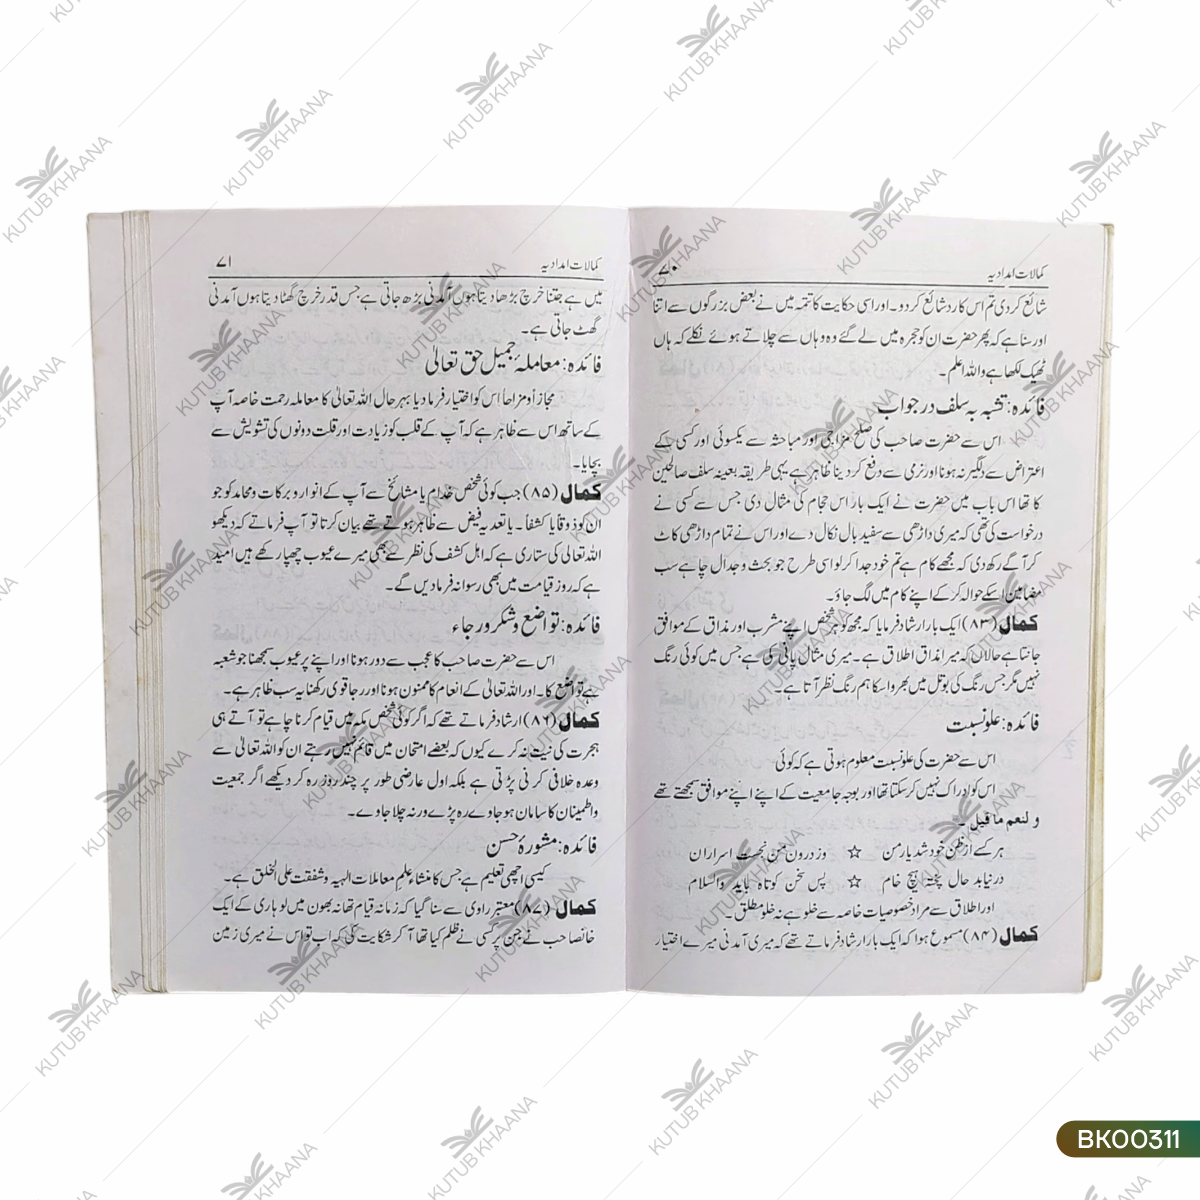 کمالات امدادیہ ۷۰
شائع کر دی تم اس کا رد شائع کر دو۔ اور اسی حکایت کا تتمہ میں نے بعض بزرگوں سے اتنا
اور سنا ہے کہ پھر حضرت ان کو حجرہ میں لے گئے وہ وہاں سے چلاتے ہوئے نکلے کہ ہاں
ٹھیک لکھا ہے واللہ اعلم۔
فائدہ: تشبہ بہ سلف در جواب
اس سے حضرت صاحب کی صلح مزاجی اور مباحثہ سے یکسوئی اور کسی کے
اعتراض سے دلگیر نہ ہونا اور نرمی سے دفع کر دینا ظاہر ہے یہی طریقہ بعینہ سلف صالحین
کا تھا اس باب میں حضرت نے ایک بار اس حجام کی مثال دی جس سے کسی نے
درخواست کی تھی کہ میری داڑھی سے سفید بال نکال دے اور اس نے تمام داڑھی کاٹ
کر آگے رکھ دی کہ مجھے کام ہے تم خود جدا کر لو اسی طرح جو بحث و جدال چاہے سب
مضامین اسکے حوالہ کر کے اپنے کام میں لگ جاؤ۔
کمال (۸۳) ایک بار ارشاد فرمایا کہ مجھ کو ہر شخص اپنے مشرب اور مذاق کے موافق
جانتا ہے حالاں کہ میرا مذاق اطلاق ہے۔ میری مثال پانی کی ہے جس میں کوئی رنگ
نہیں مگر جس رنگ کی بوتل میں بھرو اسکا ہم رنگ نظر آتا ہے۔
فائدہ: علو نسبت
اس سے حضرت کی علو نسبت معلوم ہوتی ہے کہ کوئی
اس کو ادراک نہیں کر سکتا تھا اور بوجہ جامعیت کے اپنے اپنے موافق سمجھتے تھے
و لنعم ما قیل۔
ہر کسے از ظن خود شد یار من ☆ وز درون من نجست اسرار ان
در نیابد حال پختہ ہیچ خام ☆ پس سخن کوتاہ باید والسلام
اور اطلاق سے مراد خصوصیات خاصہ سے خلو ہے نہ خلو مطلق۔
کمال (۸۴) مسموع ہوا کہ ایک بار ارشاد فرماتے تھے کہ میری آمدنی میرے اختیار
کمالات امدادیہ ۷۱
میں ہے جتنا خرچ بڑھا دیتا ہوں آمدنی بڑھ جاتی ہے جس قدر خرچ گھٹا دیتا ہوں آمدنی
گھٹ جاتی ہے۔
فائدہ: معاملۂ جمیل حق تعالیٰ
مجازاً و مزاحاً اس کو اختیار فرما دیا بہر حال اللہ تعالیٰ کا معاملہ رحمت خاصہ آپ
کے ساتھ اس سے ظاہر ہے کہ آپ کے قلب کو زیادت اور قلت دونوں کی تشویش سے
بچایا۔
کمال (۸۵) جب کوئی شخص خدام یا مشائخ سے آپ کے انوار و برکات و محامد کو جو
ان کو ذوقاً یا کشفاً۔ یا تعدیہ فیض سے ظاہر ہوتے تھے بیان کرتا تو آپ فرماتے کہ دیکھو
اللہ تعالی کی ستاری ہے کہ اہل کشف کی نظر سے بھی میرے عیوب چھپا رکھے ہیں امید
ہے کہ روز قیامت میں بھی رسوا نہ فرمادیں گے۔
فائدہ: تواضع و شکر و رجاء
اس سے حضرت صاحب کا عجب سے دور ہونا اور اپنے پر عیوب سمجھنا جو شعبہ
ہے تواضع کا۔ اور اللہ تعالیٰ کے انعام کا ممنون ہونا اور رجا قوی رکھنا یہ سب ظاہر ہے۔
کمال (۸۶) ارشاد فرماتے تھے کہ اگر کوئی شخص مکہ میں قیام کرنا چاہے تو آتے ہی
ہجرت کی نیت نہ کرے کیوں کہ بعضے امتحان میں قائم نہیں رہتے ان کو اللہ تعالیٰ سے
وعدہ خلافی کرنی پڑتی ہے بلکہ اول عارضی طور پر چند روز رہ کر دیکھے اگر جمعیت
و اطمینان کا سامان ہو جاوے رہ پڑے ورنہ چلا جاوے۔
فائدہ: مشورۂ حسن
کیسی اچھی تعلیم ہے جس کا منشاء علم معاملات الہیہ و شفقت علی الخلق ہے۔
کمال (۸۷) معتبر راوی سے سنا گیا کہ زمانہ قیام تھانہ بھون میں لوہاری کے ایک
خانصاحب نے جن پر کسی نے ظلم کیا تھا آ کر شکایت کی کہ اب تو اس نے میری زمین
KUTUB KHAANA
BK00311